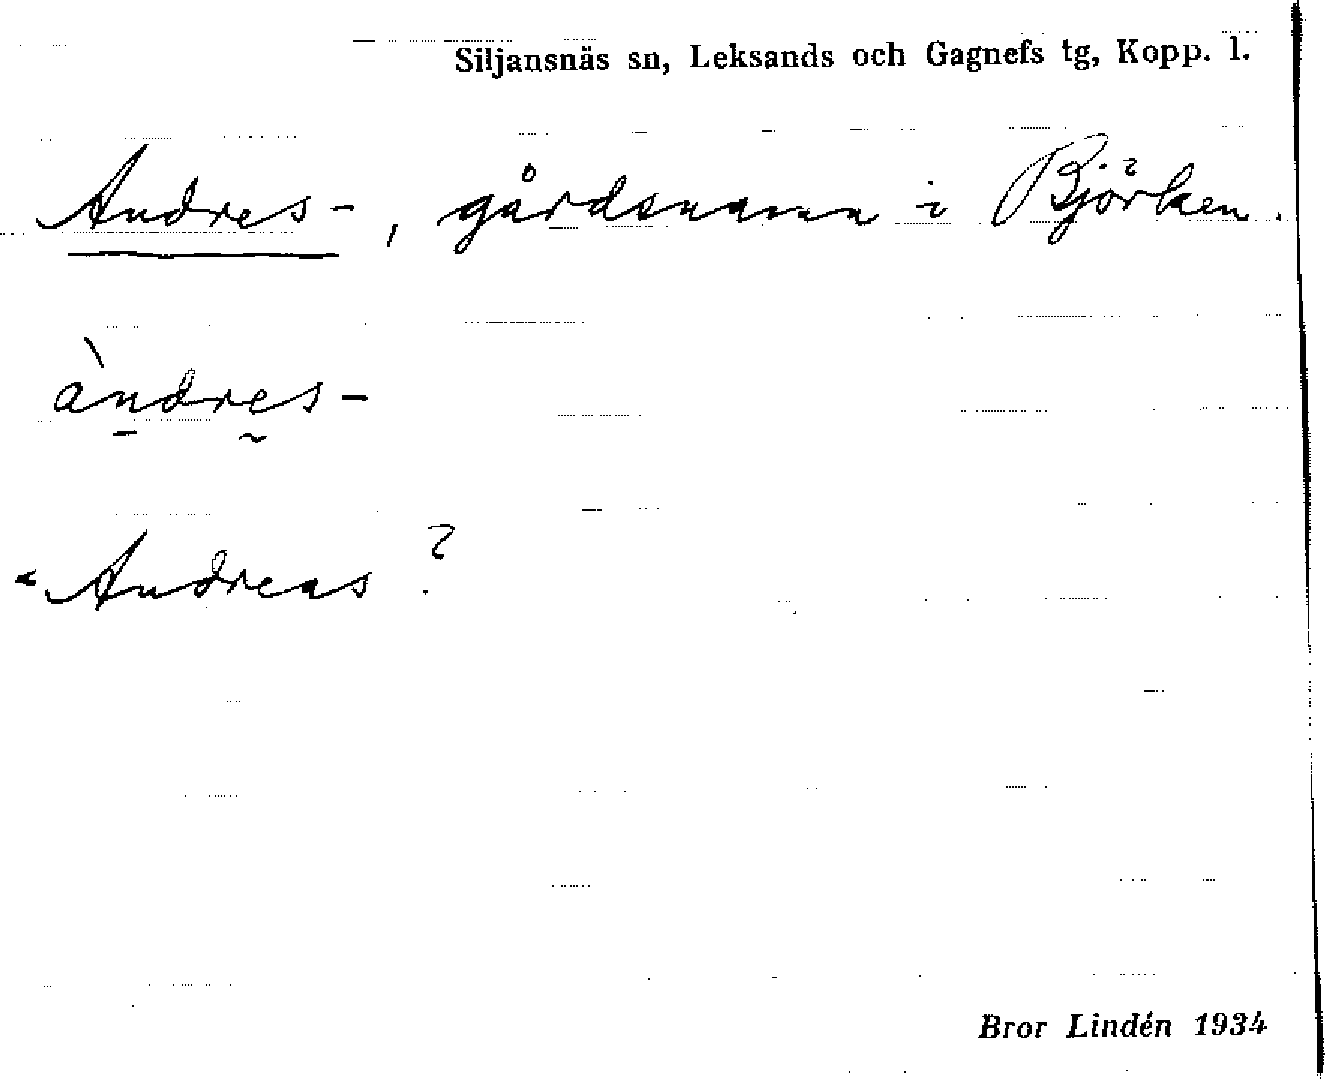 Siljansnäs sn, Leksands och Gagnefs tg, Kopp. l.
Andres-, gårdsnamn i Björken.
àndres-
"Andreas ?
Bror Lindén 1934